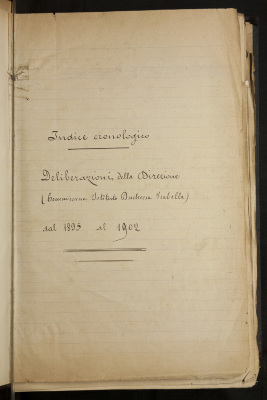 Indice cronologico
Deliberazioni della Direzione
(Commissione Istituto Duchessa Isabella)
dal 1895 al 1902